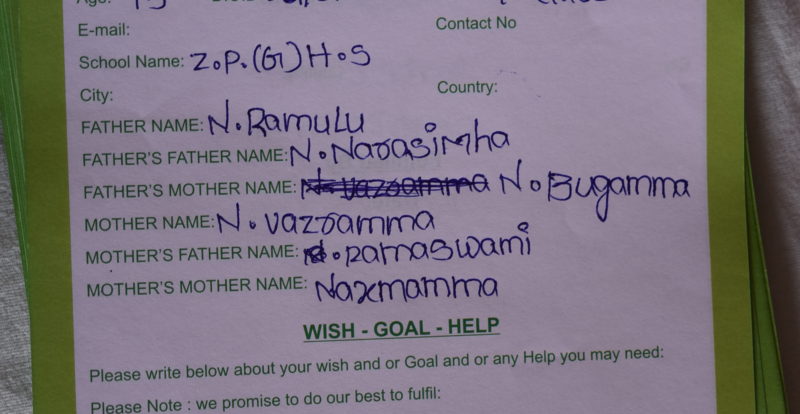 Age:
E-mail: Contact No
School Name: Z.P.(G)H.S
City: Country:
FATHER NAME: N. Ramulu
FATHER'S FATHER NAME: N. Narasimha
FATHER'S MOTHER NAME: N. Vazramma N. Bugamma
MOTHER NAME: N. Vazramma
MOTHER'S FATHER NAME: Ramaswami
MOTHER'S MOTHER NAME: Naxmamma
WISH - GOAL - HELP
Please write below about your wish and or Goal and or any Help you may need:
Please Note : we promise to do our best to fulfil: